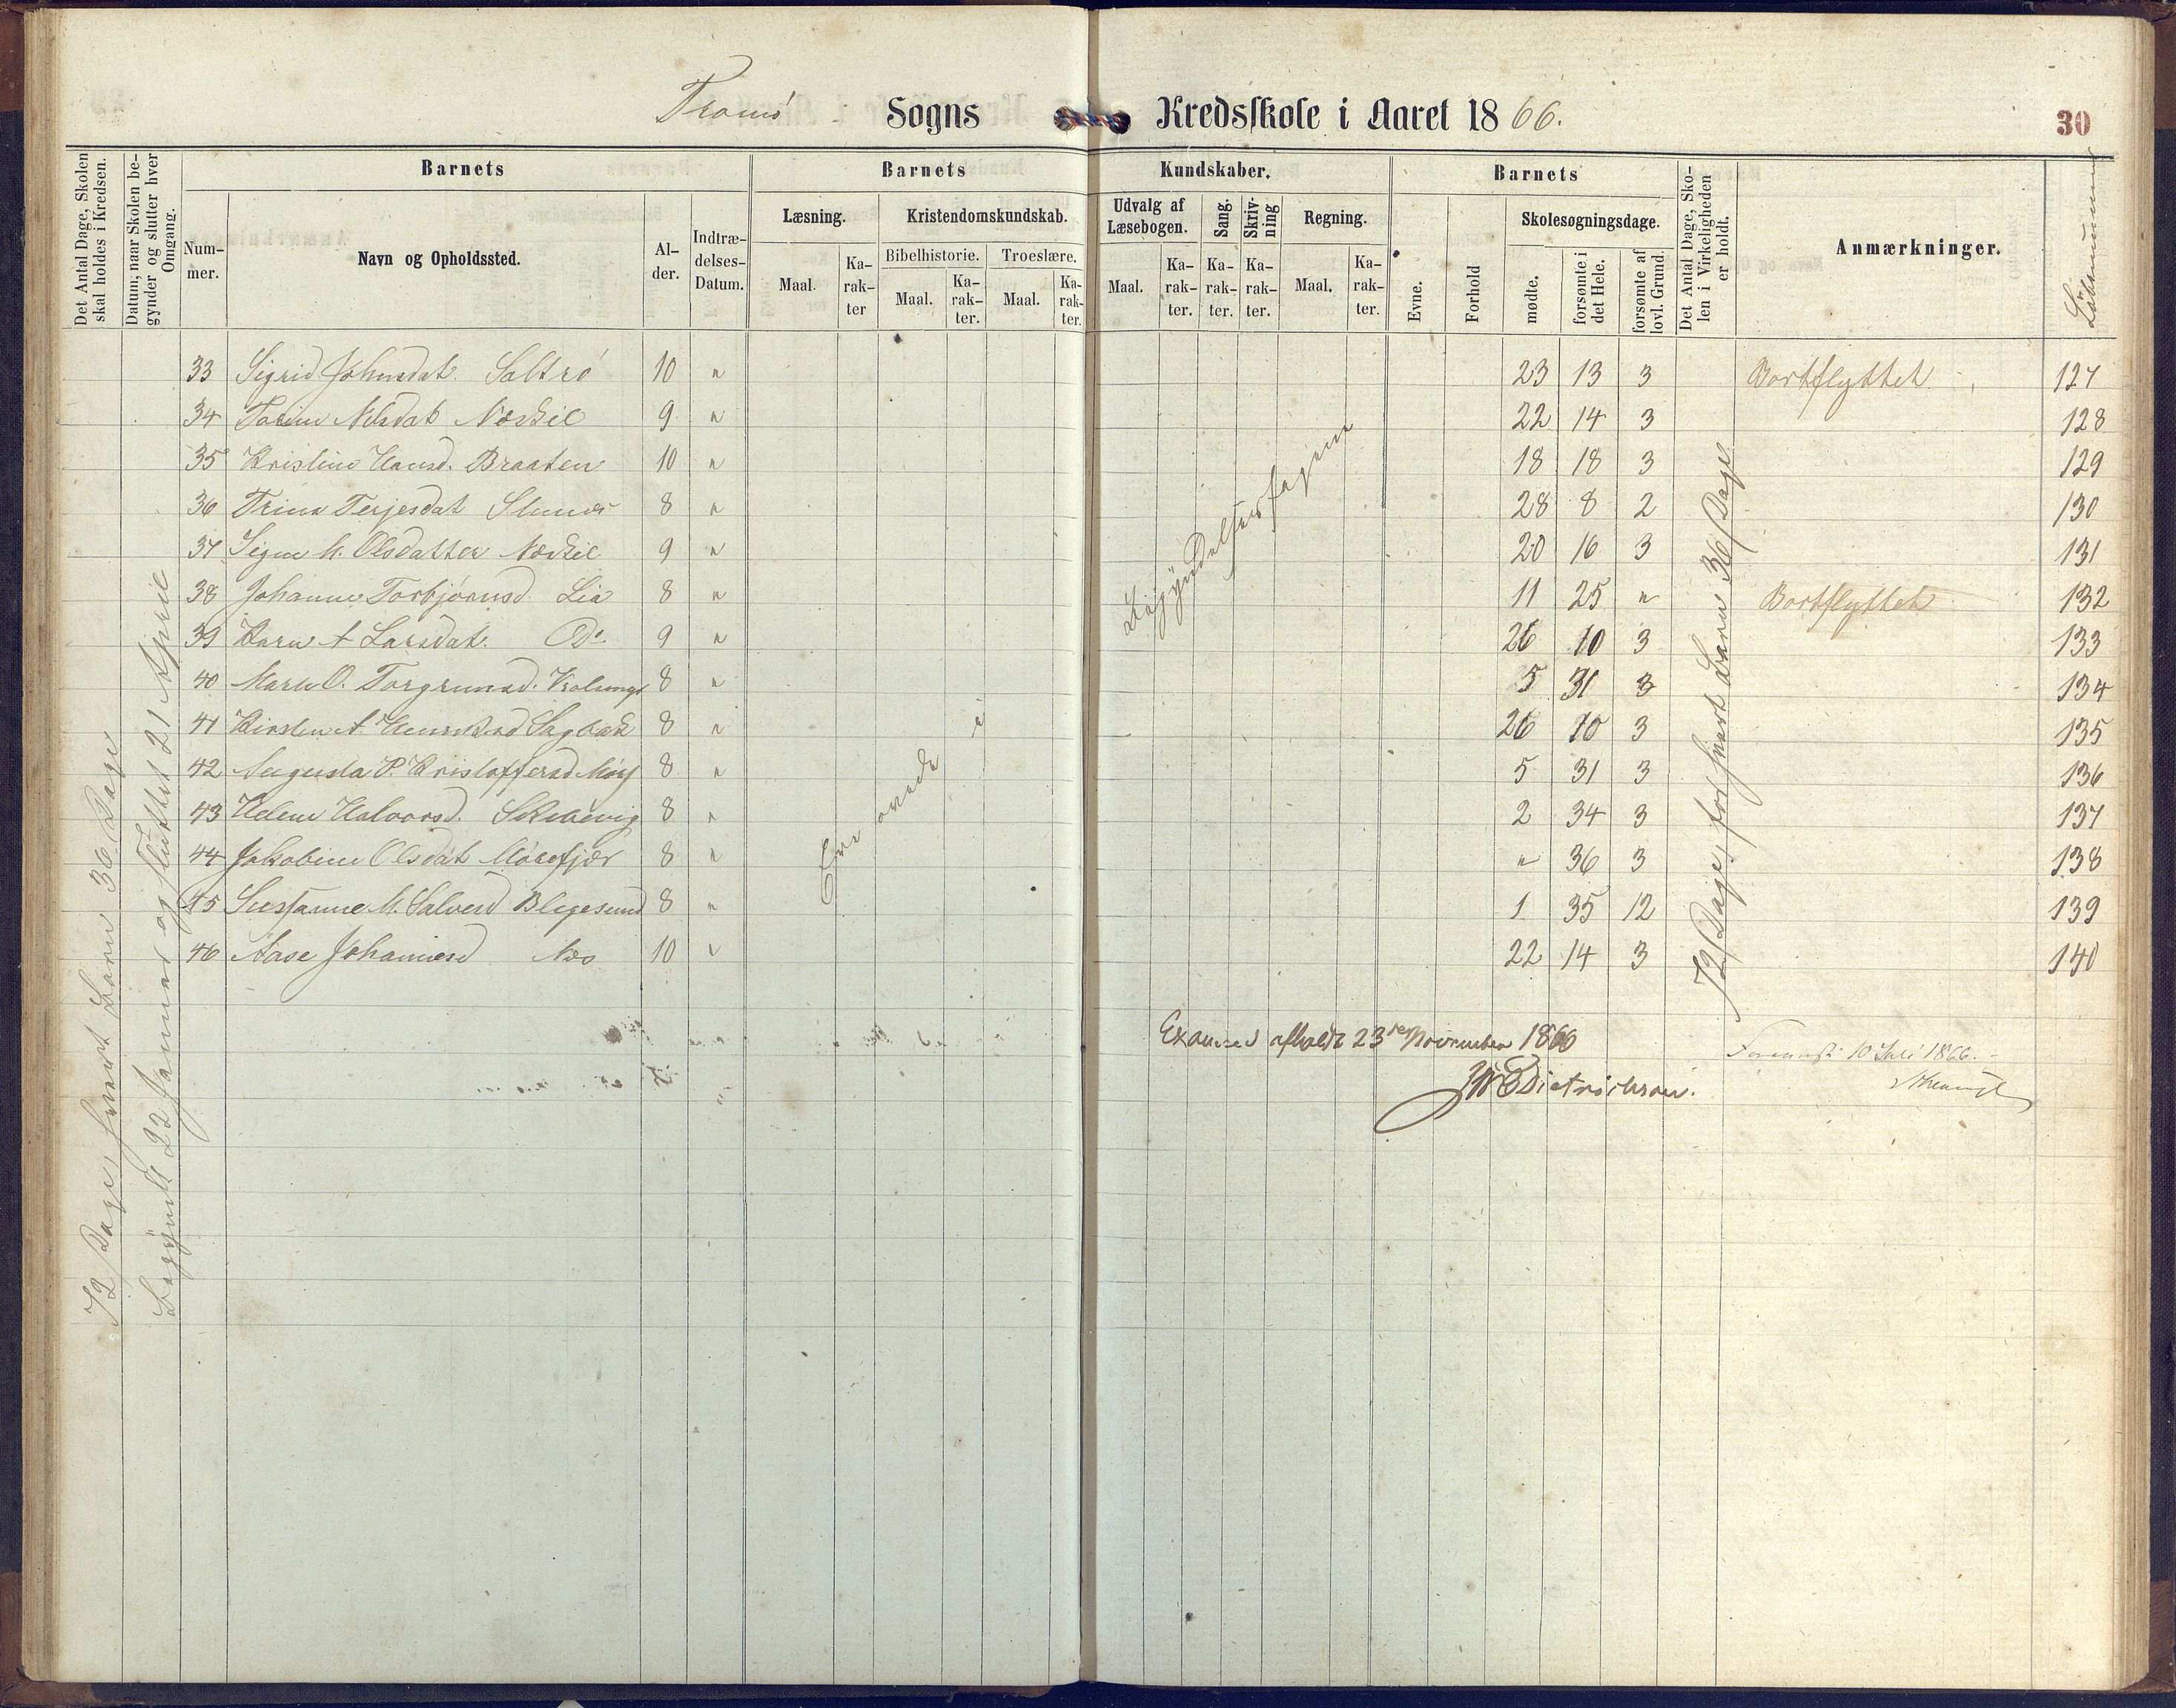 Tromö Sogns Kredsskole i Aaret 1866.
30
Det Antal Dage, Skolen skal holdes i Kredsen.
Datum, naar Skolen begynder og slutter hver Omgang.
Barnets
Nummer.
Navn og Opholdssted.
Alder.
Indtrædelses-Datum.
Barnets Kundskaber.
Læsning.
Maal.
Karakter
Kristendomskundskab.
Bibelhistorie.
Maal.
Karakter.
Troeslære.
Maal.
Karakter.
Udvalg af Læsebogen.
Maal.
Karakter.
Sang.
Karakter.
Skrivning
Karakter.
Regning.
Maal.
Karakter.
Barnets
Evne.
Forhold
Skolesøgningsdage.
mødte.
forsømte i det Hele.
forsømte af lovl. Grund.
Det Antal Dage, Skolen i Virkeligheden er holdt.
Anmærkninger.
Löbenummer
33 Sigrid Johnsdat. Saltrö 10 " 23 13 3 Bortflyttet 127
34 Nilsdat Næskil 9 " 22 14 3 128
35 Kristine Hansd. Braaten 10 " 18 18 3 129
36 Trine Terjesdat 8 " 28 8 2 130
37 Signe M. Olsdatter Næskil 9 " 20 16 3 131
38 Johanne Torbjörnsd. Lia 8 " 11 25 " Bortflyttet 132
39 Karen A Larsdat. Do 9 " 26 10 3 133
40 Maren O. 8 " 5 31 3 134
41 Kirsten A. Sagbæk 8 " 26 10 3 135
42 Augusta P. Kristoffersd 8 " 5 31 3 136
43 Helene Halvorsd. 8 " 2 34 3 137
44 Jakobine Olsdat Mörefjær 8 " " 36 3 138
45 Susanne M. Salvesd 8 " 1 35 12 139
46 Aase Johannesd Næs 10 " 22 14 3 140
72 Dage, hvert Barn 36 Dage
Begyndt 22 Januar og sluttet 21 April
Øve i
Begyndelsesfagene
72 Dage, for hvert Barn 36 Dage.
Examen afholdt 23de November 1866
Dietrichson.
10 Juli 1866.